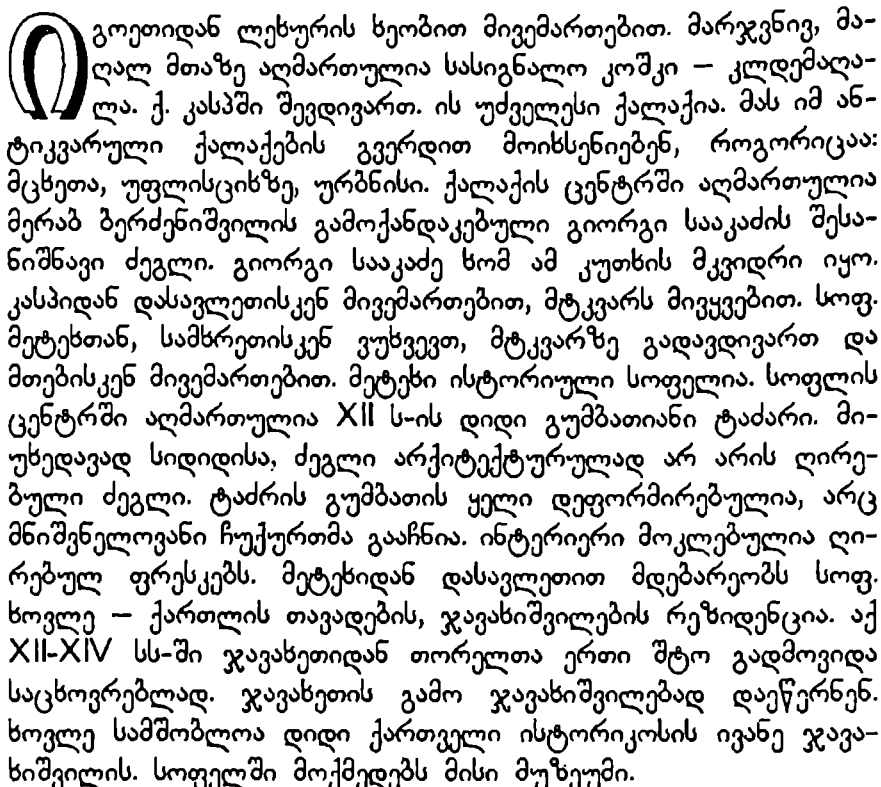 იგოეთიდან ლეხურის ხეობით მივემართებით. მარჯვნივ, მა-
ღალ მთაზე აღმართულია სასიგნალო კოშკი — კლდემაღა-
ლა. ქ. კასპში შევდივართ. ის უძველესი ქალაქია. მას იმ ან-
ტიკვარული ქალაქების გვერდით მოიხსენიებენ, როგორიცაა:
მცხეთა, უფლისციხზე, ურბნისი. ქალაქის ცენტრში აღმართულია
მერაბ ბერძენიშვილის გამოქანდაკებული გიორგი სააკაძის შესა-
ნიშნავი ძეგლი. გიორგი სააკაძე ხომ ამ კუთხის მკვიდრი იყო.
კასპიდან დასავლეთისკენ მივემართებით, მტკვარს მივყვებით. სოფ.
მეტეხთან, სამხრეთისკენ ვუხვევთ, მტკვარზე გადავდივართ და
მთებისკენ მივემართებით. მეტეხი ისტორიული სოფელია. სოფლის
ცენტრში აღმართულია XII ს-ის დიდი გუმბათიანი ტაძარი. მი-
უხედავად სიდიდისა, ძეგლი არქიტექტურულად არ არის ღირე-
ბული ძეგლი. ტაძრის გუმბათის ყელი დეფორმირებულია, არც
მნიშვნელოვანი ჩუქურთმა გააჩნია. ინტერიერი მოკლებულია ღი-
რებულ ფრესკებს. მეტეხიდან დასავლეთით მდებარეობს სოფ.
ხოვლე — ქართლის თავადების, ჯავახიშვილების რეზიდენცია. აქ
XII-XIV სს-ში ჯავახეთიდან თორელთა ერთი შტო გადმოვიდა
საცხოვრებლად. ჯავახეთის გამო ჯავახიშვილებად დაეწერნენ.
ხოვლე სამშობლოა დიდი ქართველი ისტორიკოსის ივანე ჯავა-
ხიშვილის. სოფელში მოქმედებს მისი მუზეუმი.